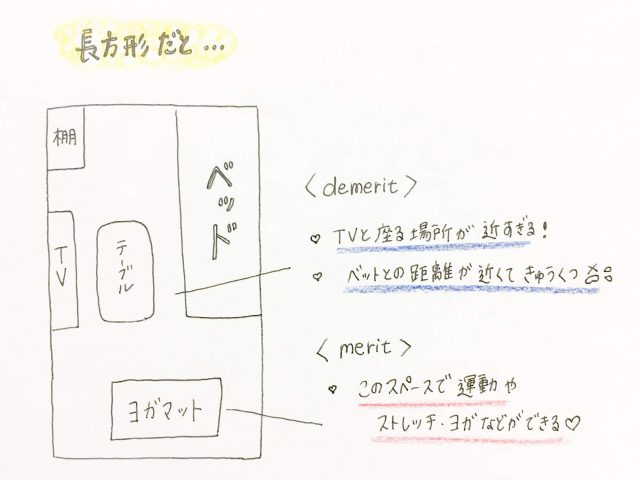 長方形だと…
棚
ベッド
TV
テーブル
ヨガマット
〈demerit〉
♡ TVと座る場所が近すぎる!
♡ ベットとの距離が近くてきゅうくつ
〈merit〉
♡ このスペースで運動や
ストレッチ・ヨガなどができる♡